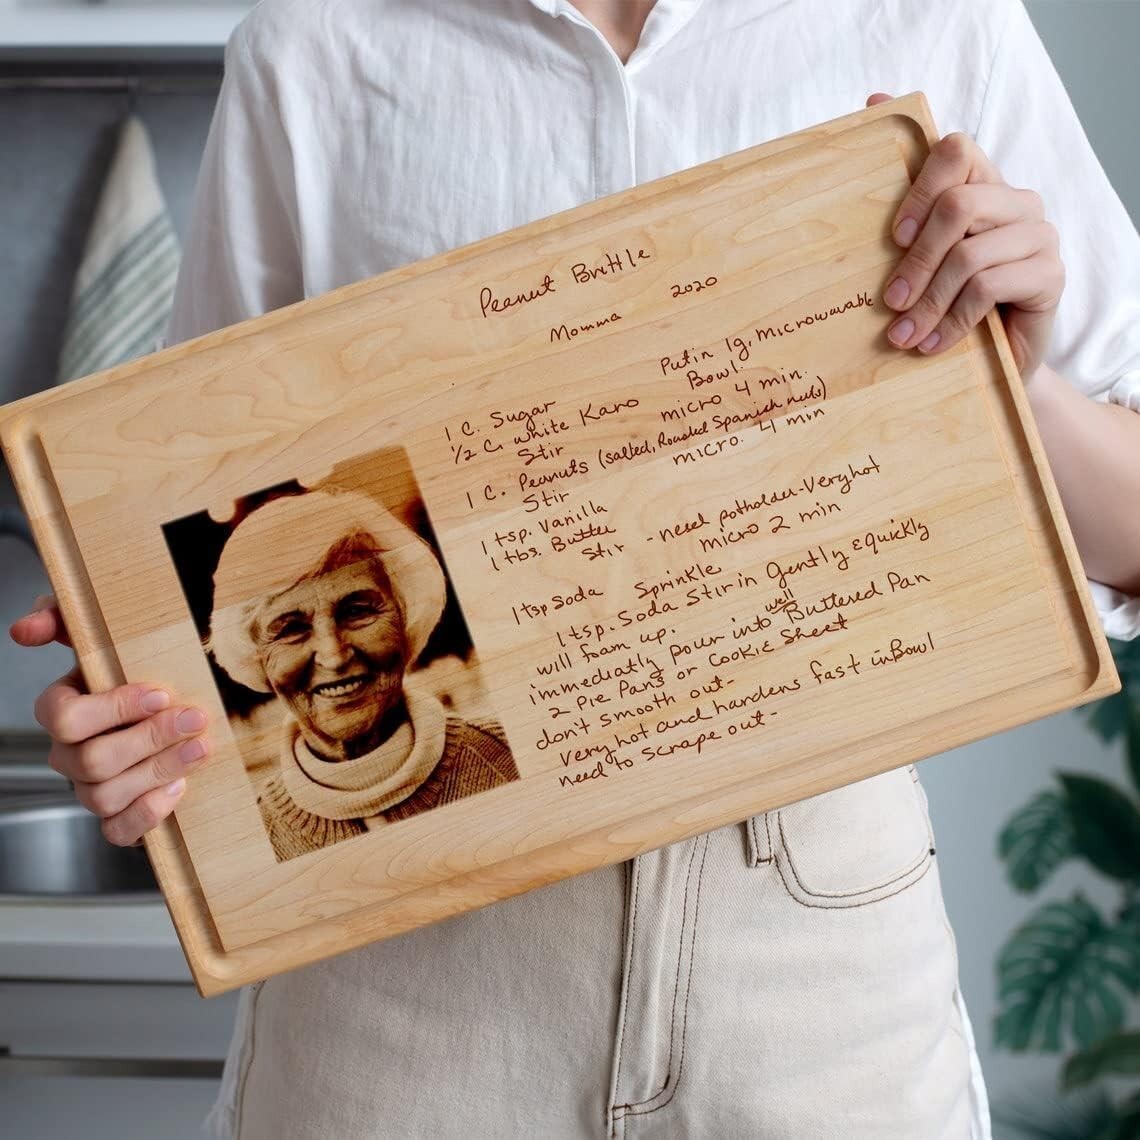 Peanut Brittle
Momma 2020
Put in 1g. microwavable
Bowl.
1 C. Sugar
1/2 C. white Karo
Stir micro 4 min.
1 C. Peanuts (salted, Roasted Spanish nuts)
Stir micro. 4 min
1 tsp. Vanilla
1 tbs. Butter
Stir - need potholder - Very hot
micro 2 min
1 tsp Soda Sprinkle
1 tsp. Soda Stir in gently & quickly
will foam up.
immediatly pour into well Buttered Pan
2 Pie Pans or Cookie Sheet
don't smooth out -
Very hot and hardens fast in Bowl
need to scrape out -